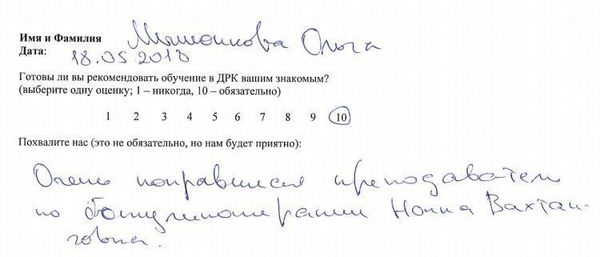 Имя и Фамилия Ольга
Дата: 18.05.2018
Готовы ли вы рекомендовать обучение в ДРК вашим знакомым?
(выберите одну оценку; 1 – никогда, 10 – обязательно)
1 2 3 4 5 6 7 8 9 10
Похвалите нас (это не обязательно, но нам будет приятно):
Очень понравился преподаватель
по ботулинотерапии Нонна Вахтан-
говна.